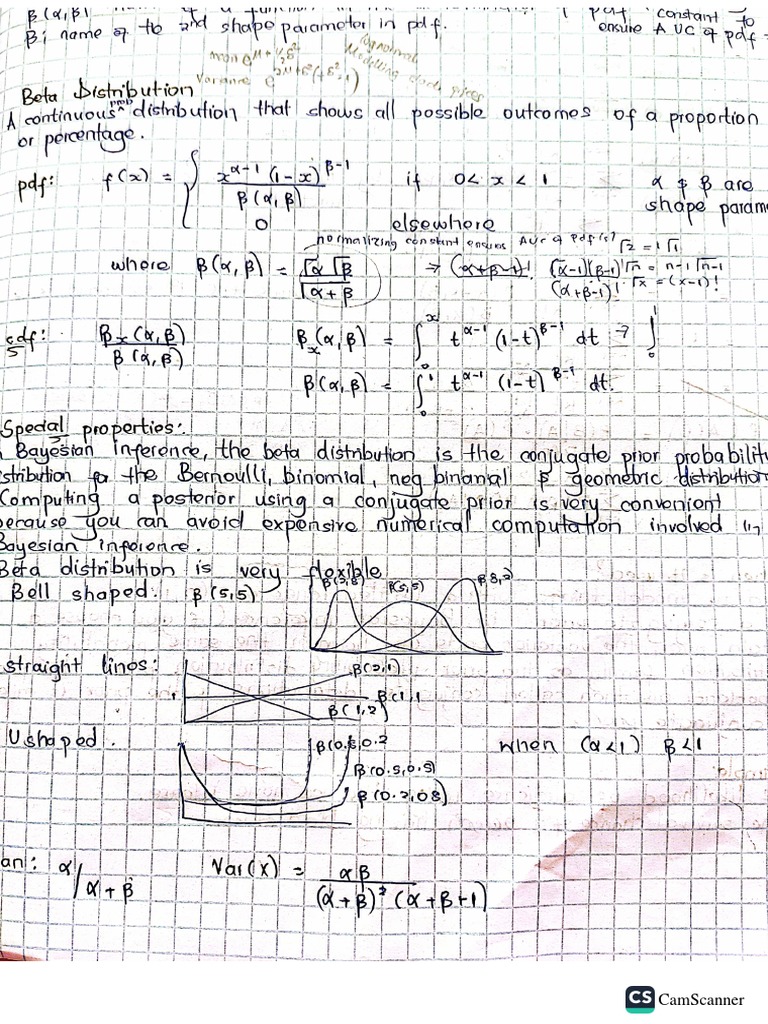 β(α,β)
β: name of the 2nd shape parameter in pdf.
pdf constant to
ensure AUC of pdf =
mean e^μ+½δ²
Variance e^2μ+δ²(
lognormal
Modelling stock prices
Beta Distribution
A continuous prob distribution that shows all possible outcomes of a proportion
or percentage.
pdf: f(x) = { x^α-1 (1-x)^β-1 / β(α,β) if 0<x<1 α & β are
0 elsewhere shape param
normalizing constant ensures AUC of pdf is 1 √2 = 1√1
where β(α,β) = Γα Γβ / Γα+β ⇒ (α+β-1)! (α-1)!(β-1)! / (α+β-1)! Γn = n-1 Γn-1
Γx = (x-1)!
cdf: βx(α,β) / β(α,β) βx(α,β) = ∫₀^x t^α-1 (1-t)^β-1 dt ⇒ ∫₀^1
β(α,β) = ∫₀^1 t^α-1 (1-t)^β-1 dt.
Special properties:
Bayesian inference, the beta distribution is the conjugate prior probability
stribution for the Bernoulli, binomial, neg binomial & geometric distribution
Computing a posterior using a conjugate prior is very convenient
because you can avoid expensive numerical computation involved in
Bayesian inference.
Beta distribution is very flexible
Bell shaped: β(5,5) β(2,8) β(5,5) β8,2)
straight lines: β(2,1)
1 β(1,1
β(1,2)
U shaped. β(0.8,0.2 when (α<1) β<1
β(0.5,0.5)
β(0.2,08)
an: α/α+β Var(x) = αβ / (α+β)² (α+β+1)
CS CamScanner